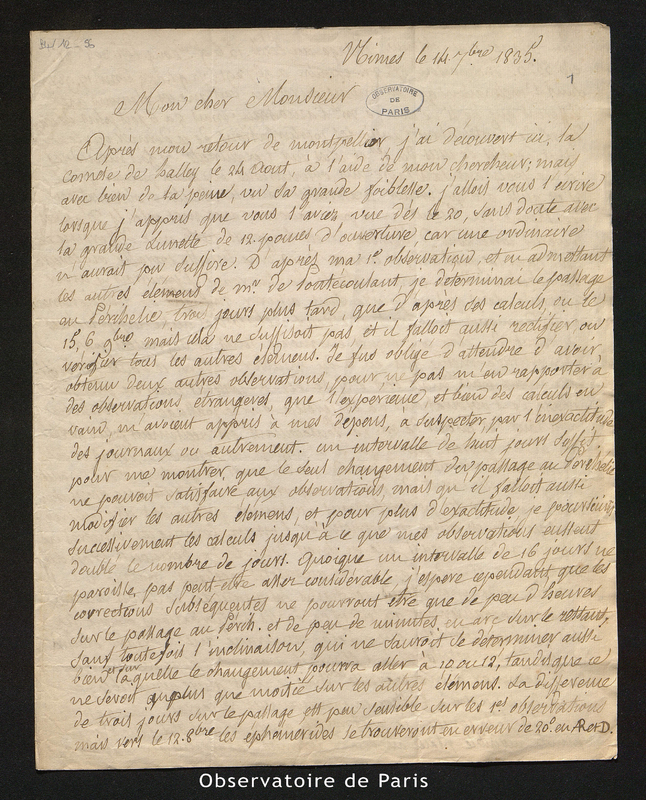 Nimes le 14. 7bre 1835.
1
Mon cher Monsieur
OBSERVATOIRE
DE
PARIS
Après mon retour de montpellier, j'ai decouvert ici, la
comète de halley le 24 aout, à l'aide de mon chercheur; mais
avec bien de la peine, vu sa grande foiblesse. j'allois vous l'écrire
lorsque j'appris que vous l'avez vue dès le 20, sans doute avec
la grande Lunette de 12. pouces d'ouverture car une ordinaire
n'auroit pu suffire. D'après ma 1e observation, et en admettant
les autres élemens de mr. de Pontécoulant, je determinai le passage
au Périhelie, trois jours plus tard, que d'après ses calculs, ou le
15, 6 9bre, mais cela ne suffisoit pas et il falloit aussi rectifier, ou
verifier tous les autres elemens. Je fus obligé d'attendre d'avoir
obtenu deux autres observations, pour ne pas m'en rapporter à
des observations étrangères, que l'experience, et bien des calculs en
vain, m'avoient appris à mes depens, à suspecter par l'inexactitude
des journaux ou autrement. un intervalle de huit jours suffit
pour me montrer que le seul changement du passage au Perihelie
ne pouvoit satisfaire aux observations, mais qu'il falloit aussi
modifier les autres elemens, et pour plus d'exactitude, je poursuivis
successivement les calculs jusqu'à ce que mes observations eussent
double le nombre de jours. Quoique un intervalle de 16 jours ne
paroisse pas peut être assez considerable, j'espère cependant que les
corrections subsequentes ne pourront être que de peu d'heures
sur le passage au Périh. et de peu de minutes, en arc sur le restant,
sauf toutefois l'inclinaison, qui ne sauroit se determiner aussi
bien et sur laquelle le changement pourra aller à 10 ou 12, tandis que ce
ne seroit au plus que moitié sur les autres élemens. La difference
de trois jours sur le passage est peu sensible sur les 1res observations
mais vers le 12. 8bre les ephemerides se trouveront en erreur de 20° en AR et D.
Observatoire de Paris